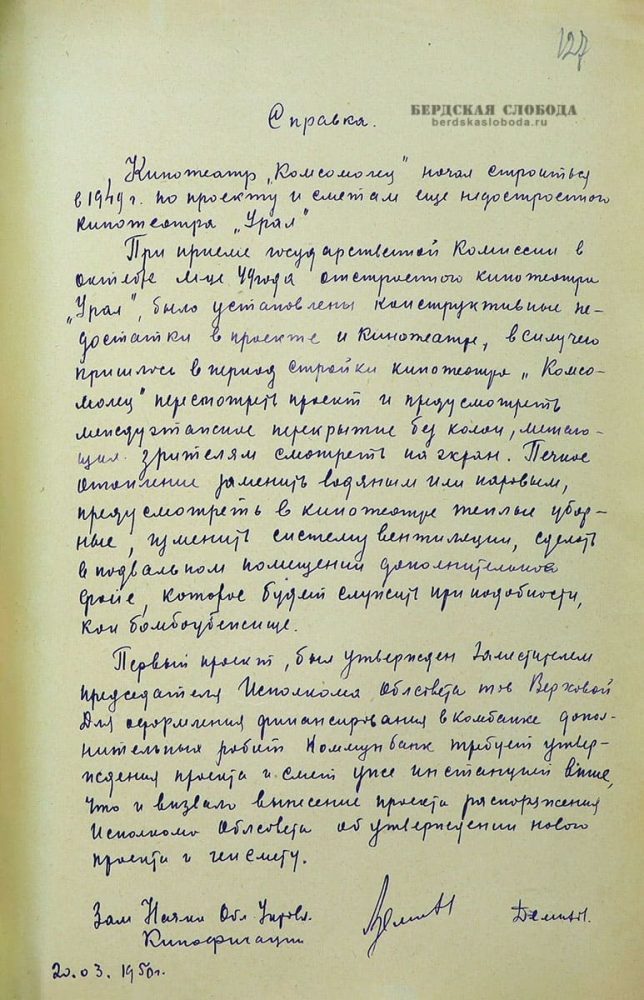 127
БЕРДСКАЯ СЛОБОДА
berdskasloboda.ru
Справка.
Кинотеатр „Комсомолец" начал строиться
в 1949 г. по проекту и сметам еще недостроенного
кинотеатра „Урал"
При приеме государственной Комиссии в
октябре м-це 49 года отстроенного кинотеатра
„Урал", было установлены конструктивные не-
достатки в проекте и кинотеатре, в силу чего
пришлось в период стройки кинотеатра „Комсо-
молец" пересмотреть проект и предусмотреть
междуэтажное перекрытие без колон, мешаю-
щих зрителям смотреть на экран. Печное
отопление заменить водяным или паровым,
предусмотреть в кинотеатре теплые убор-
ные, изменить систему вентиляции, сделать
в подвальном помещении дополнительное
фойе, которое будет служить при надобности,
как бомбоубежище.
Первый проект, был утвержден Заместителем
председателя Исполкома Облсовета тов Верховой
Для оформления финансирования в комбанке допол-
нительных работ Коммунбанк требует утвер-
ждения проекта и смет уже инстанцией выше,
что и вызвало вынесение проекта распоряжения
Исполкома Облсовета об утверждении нового
проекта и генсмету.
Зам Нач Обл Управл.
Кинофикации
20.03.1950г.